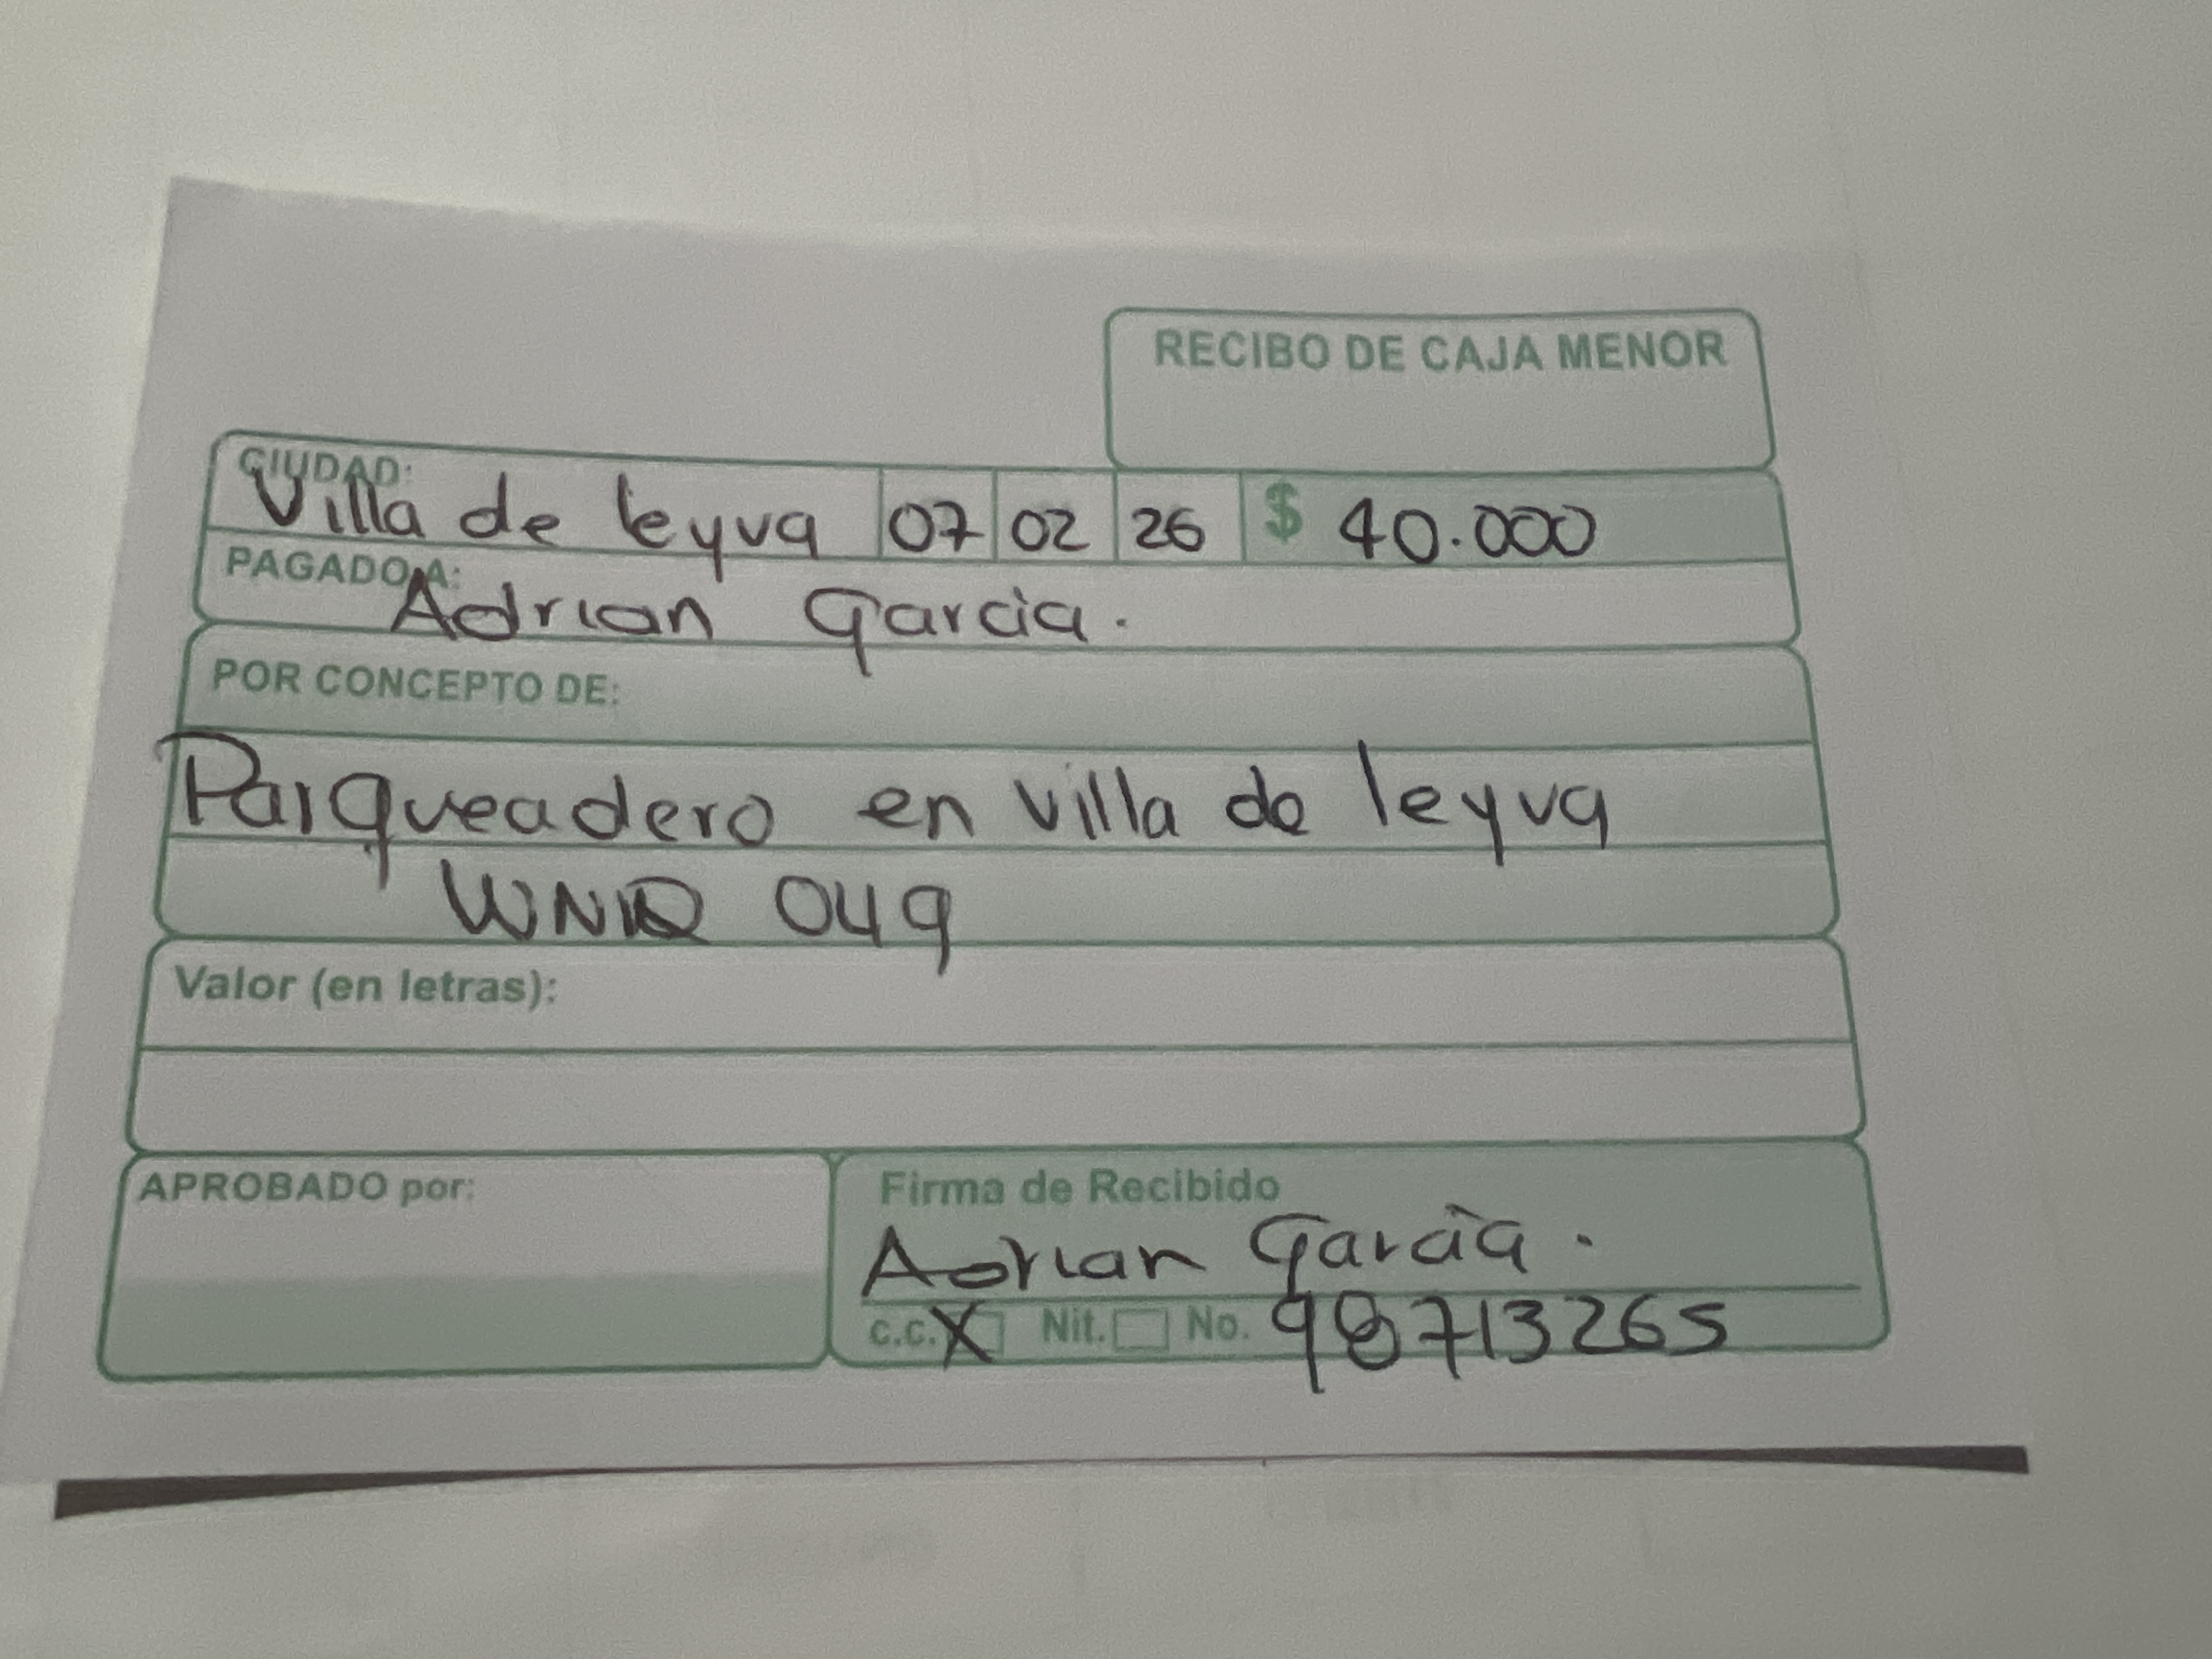 RECIBO DE CAJA MENOR
CIUDAD:
Villa de leyva 07 02 26 $ 40.000
PAGADO A:
Adrian Garcia.
POR CONCEPTO DE:
Parqueadero en villa de leyva
049
Valor (en letras):
APROBADO por:
Firma de Recibido
Adrian Garcia.
c.c. X Nit. No. 98713265